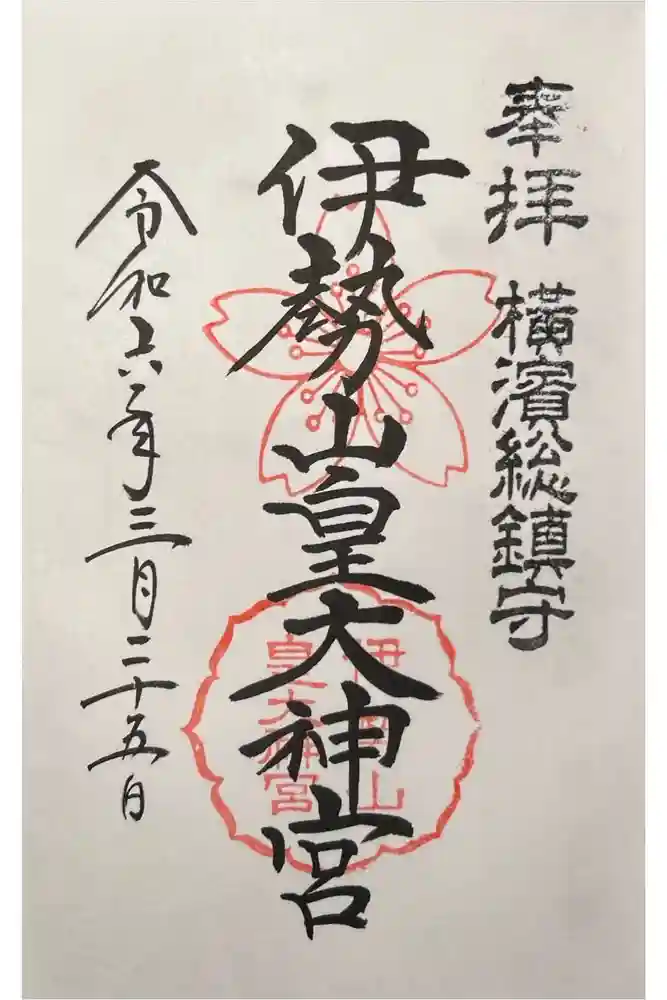 奉拝
横濱総鎮守
伊勢山皇大神宮
伊勢山
皇大神宮
令和六年三月二十五日